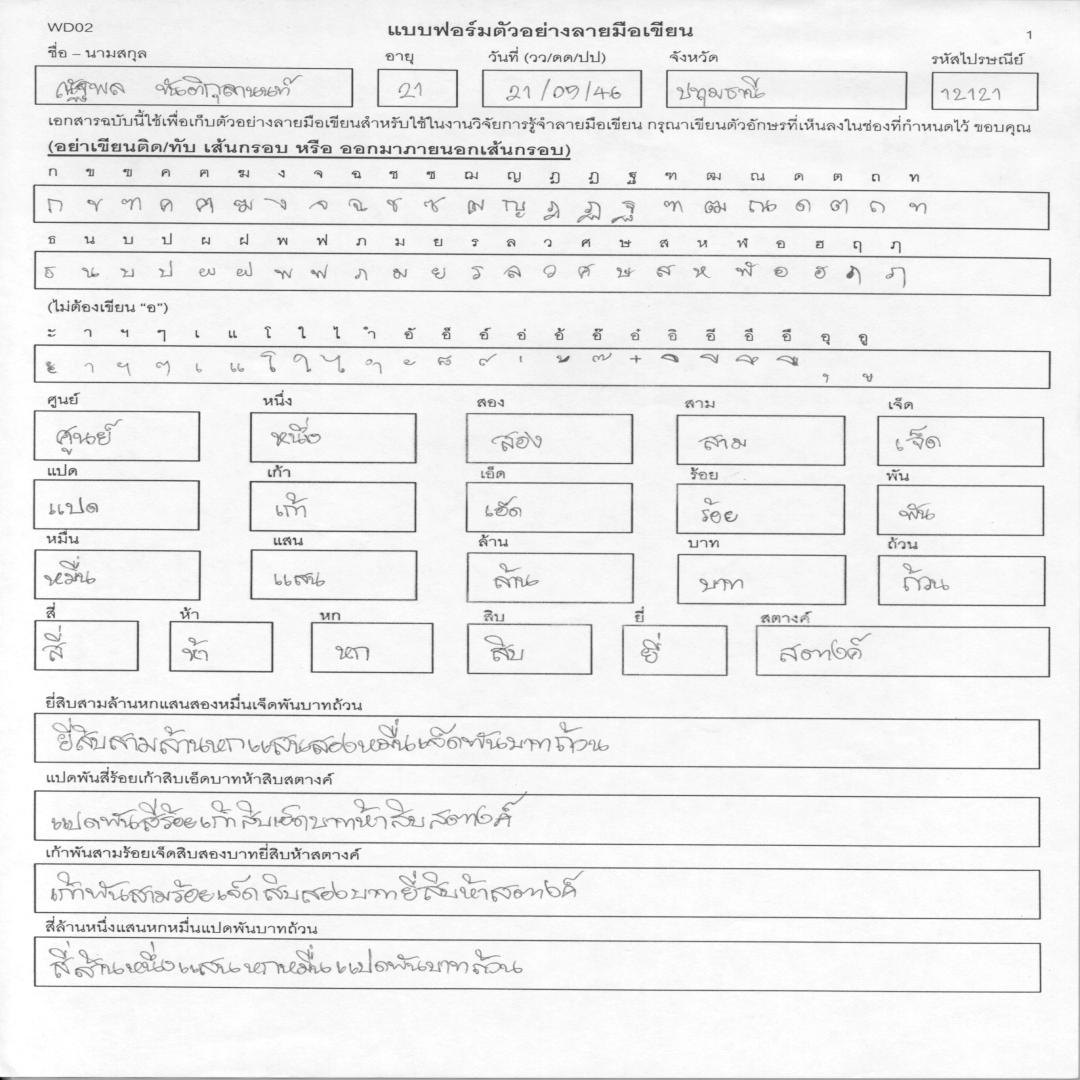 WD02
แบบฟอร์มตัวอย่างลายมือเขียน
1
ชื่อ – นามสกุล อายุ วันที่ (วว/ดด/ปป) จังหวัด รหัสไปรษณีย์
ณัฐพล 21 21/09/46 ปทุมธานี 12121
เอกสารฉบับนี้ใช้เพื่อเก็บตัวอย่างลายมือเขียนสำหรับใช้ในงานวิจัยการรู้จำลายมือเขียน กรุณาเขียนตัวอักษรที่เห็นลงในช่องที่กำหนดไว้ ขอบคุณ
(อย่าเขียนติด/ทับ เส้นกรอบ หรือ ออกมาภายนอกเส้นกรอบ)
ก ข ฃ ค ฅ ฆ ง จ ฉ ช ซ ฌ ญ ฎ ฏ ฐ ฑ ฒ ณ ด ต ถ ท
ก ข ฃ ค ฅ ฆ ง จ ฉ ช ซ ฌ ญ ฎ ฏ ฐ ฑ ฒ ณ ด ต ถ ท
ธ น บ ป ผ ฝ พ ฟ ภ ม ย ร ล ว ศ ษ ส ห ฬ อ ฮ ฤ ฦ
ธ น บ ป ผ ฝ พ ฟ ภ ม ย ร ล ว ศ ษ ส ห ฬ อ ฮ ฤ ฦ
(ไม่ต้องเขียน “อ”)
ะ า ฯ ๆ เ แ โ ใ ไ ำ อั อ็ อ์ อ่ อ้ อ๊ อ๋ อิ อี อึ อื อุ อู
ะ า ฯ ๆ เ แ โ ใ ไ ำ ั ็ ์ ่ ้ ๊ ๋ ิ ี ึ ื ุ ู
ศูนย์ หนึ่ง สอง สาม เจ็ด
ศูนย์ หนึ่ง สอง สาม เจ็ด
แปด เก้า เอ็ด ร้อย พัน
แปด เก้า เอ็ด ร้อย พัน
หมื่น แสน ล้าน บาท ถ้วน
หมื่น แสน ล้าน บาท ถ้วน
สี่ ห้า หก สิบ ยี่ สตางค์
สี่ ห้า หก สิบ ยี่ สตางค์
ยี่สิบสามล้านหกแสนสองหมื่นเจ็ดพันบาทถ้วน
ยี่สิบสามล้านหกแสนสองหมื่นเจ็ดพันบาทถ้วน
แปดพันสี่ร้อยเก้าสิบเอ็ดบาทห้าสิบสตางค์
แปดพันสี่ร้อยเก้าสิบเอ็ดบาทห้าสิบสตางค์
เก้าพันสามร้อยเจ็ดสิบสองบาทยี่สิบห้าสตางค์
เก้าพันสามร้อยเจ็ดสิบสองบาทยี่สิบห้าสตางค์
สี่ล้านหนึ่งแสนหกหมื่นแปดพันบาทถ้วน
สี่ล้านหนึ่งแสนหกหมื่นแปดพันบาทถ้วน